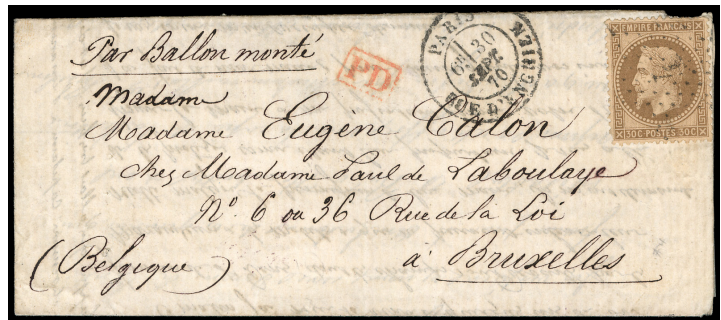 Par Ballon monté
PD
PARIS
6E 30
SEPT
70
RUE D'ENGHIEN
EMPIRE FRANÇAIS
30C POSTES 30C
Madame
Madame Eugène Talon
chez Madame Paul de Laboulaye
N° 6 ou 36 Rue de la Loi
à Bruxelles
(Belgique)